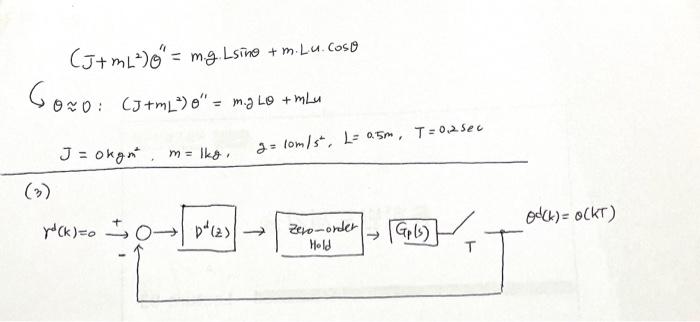 (J+mL²)θ'' = m.g.Lsinθ + m.Lu.cosθ
θ≈0 : (J+mL²)θ'' = m.gLθ + mLu
J = 0kgm², m = 1kg, g = 10m/s², L = 0.5m, T = 0.2sec
(3)
r^d(k)=0 + - D^d(z) Zero-order Hold Gp(s) T θ^d(k) = θ(kT)